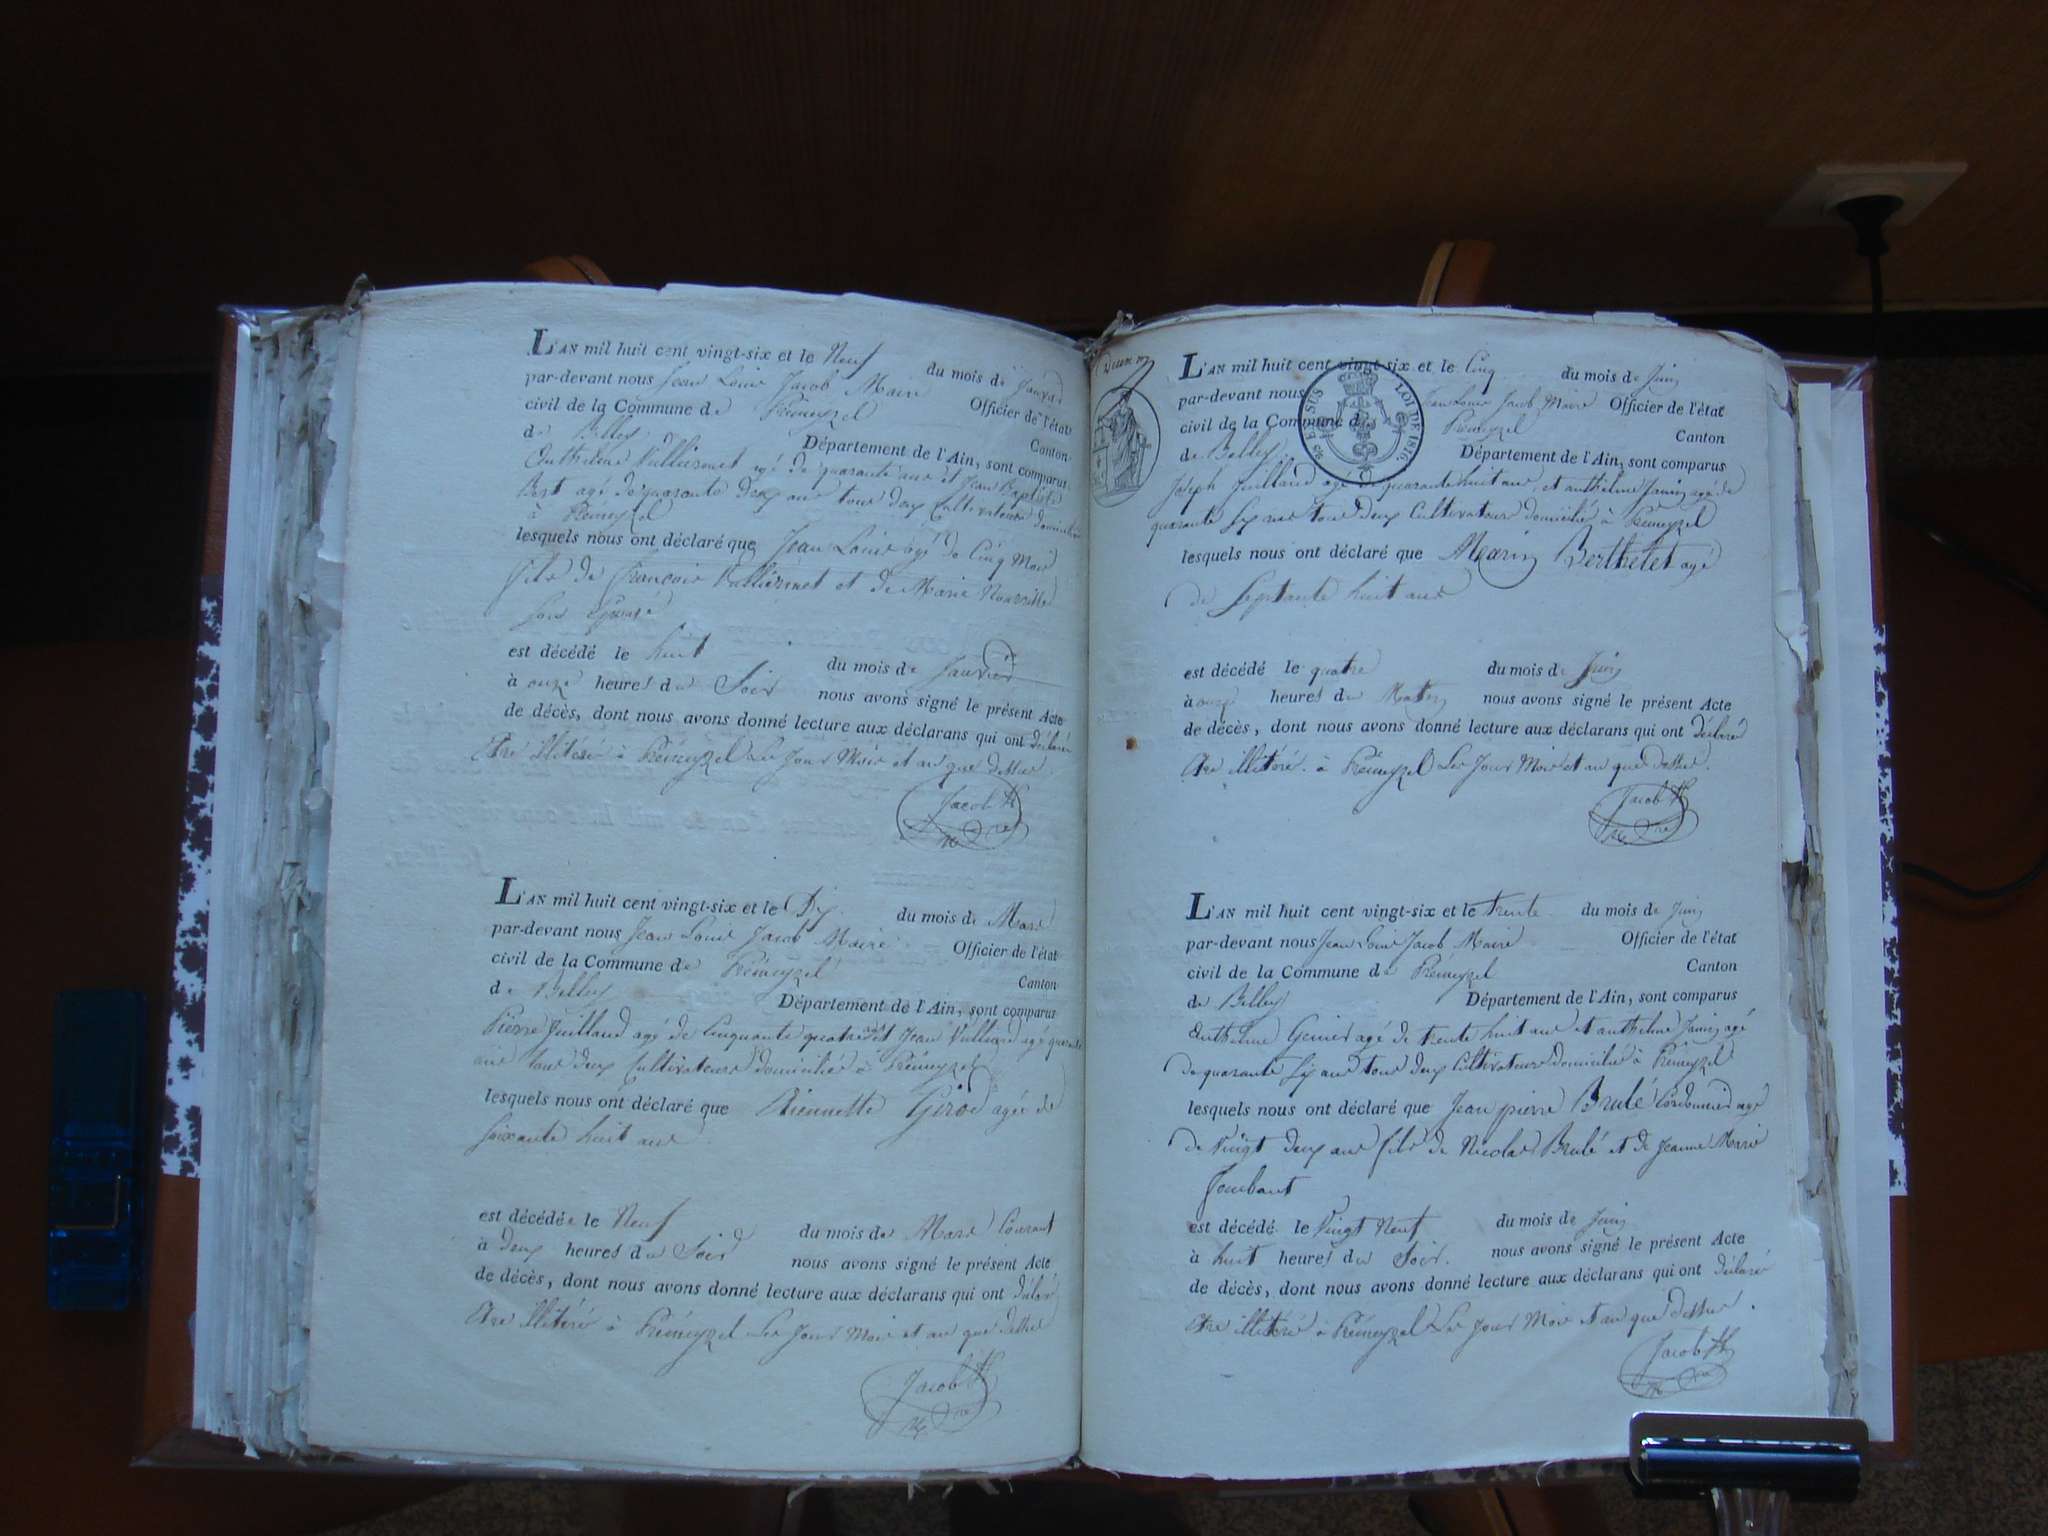 L'AN mil huit cent vingt-six et le Neuf du mois de Janvier
par-devant nous Jean Louis Jacob Maire Officier de l'état
civil de la Commune de Prémeyzel Canton
de Belley Département de l'Ain, sont comparus
Anthelme Vulliermet agé de quarante ans et Jean Baptiste
Bert agé de quarante deux ans tous deux Cultivateurs domiciliés
à Prémeyzel
lesquels nous ont déclaré que Jean Louis agé de Cinq Mois
fils de françois Vulliermet et de Marie
son épouse
est décédé le huit du mois de Janvier
à onze heures du Soir nous avons signé le présent Acte
de décès, dont nous avons donné lecture aux déclarans qui ont déclaré
être illitéré à Prémeyzel Les Jour Mois et an que dessus.
Jacob
L'AN mil huit cent vingt-six et le Dix du mois de Mars
par-devant nous Jean Louis Jacob Maire Officier de l'état
civil de la Commune de Prémeyzel Canton
de Belley Département de l'Ain, sont comparus
Pierre Juilland agé de Cinquante quatre ans et Jean Vulliard agé quarante
ans tous deux Cultivateurs domiciliés à Prémeyzel
lesquels nous ont déclaré que Pierrette Girod agée de
soixante huit ans
est décédée le Neuf du mois de Mars Courant
à deux heures du Soir nous avons signé le présent Acte
de décès, dont nous avons donné lecture aux déclarans qui ont déclaré
être illitéré à Prémeyzel Les Jour Mois et an que dessus
Jacob
EN SUS LOI DE 1816
L'AN mil huit cent vingt-six et le Cinq du mois de Juin
par-devant nous Jean Louis Jacob Maire Officier de l'état
civil de la Commune de Prémeyzel Canton
de Belley Département de l'Ain, sont comparus
Joseph Juilland agé de quarante huit ans, et anthelme Janin agé de
quarante six ans tous deux Cultivateurs domicilié à Prémeyzel
lesquels nous ont déclaré que Marin Berthelet agé
de Septante huit ans
est décédé le quatre du mois de Juin
à onze heures du Matin nous avons signé le présent Acte
de décès, dont nous avons donné lecture aux déclarans qui ont déclaré
être illitéré. à Prémeyzel Les Jour Mois et an que dessus.
Jacob
L'AN mil huit cent vingt-six et le trente du mois de Juin
par-devant nous Jean Louis Jacob Maire Officier de l'état
civil de la Commune de Prémeyzel Canton
de Belley Département de l'Ain, sont comparus
Anthelme agé de trente huit ans et anthelme Janin agé
de quarante six ans tous deux Cultivateurs domicilié à Prémeyzel
lesquels nous ont déclaré que Jean pierre Brulé Cordonnier agé
de vingt deux ans fils de Nicolas Brulé et de Jeanne Marie
Joubant
est décédé le Vingt Neuf du mois de Juin
à huit heures du Soir. nous avons signé le présent Acte
de décès, dont nous avons donné lecture aux déclarans qui ont déclaré
être illitéré à Prémeyzel Les Jour Mois et an que dessus.
Jacob